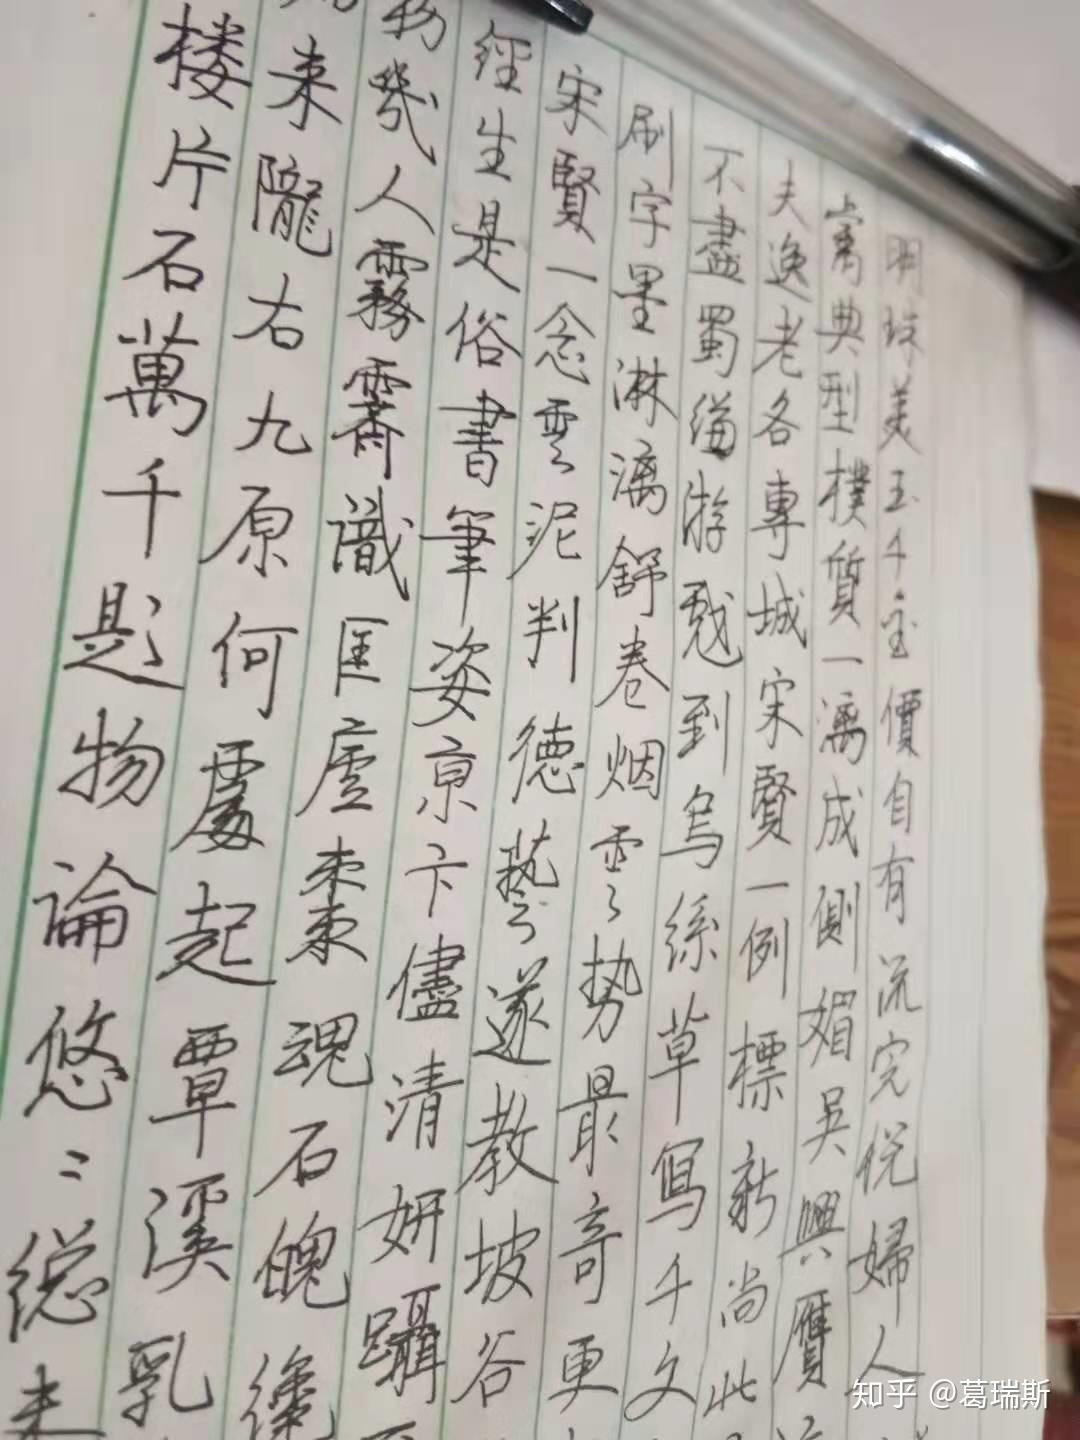 明珠美玉千金價自有流完悦婦人
離典型樸質一漓成側媚吳興贋
夫逸老各專城宋賢一例標新尚此
不盡蜀縑游戲到烏絲草寫千文
刷字墨淋漓舒卷烟雲勢最奇更
宋賢一念雲泥判德藝遂教坡谷
經生是俗書筆姿京卞儘清妍躡
物幾人霧霽識匡廬棗棗魂石魄纔
來隴右九原何處起覃溪乳
樓片石萬千題物論悠〻總未
知乎 @葛瑞斯